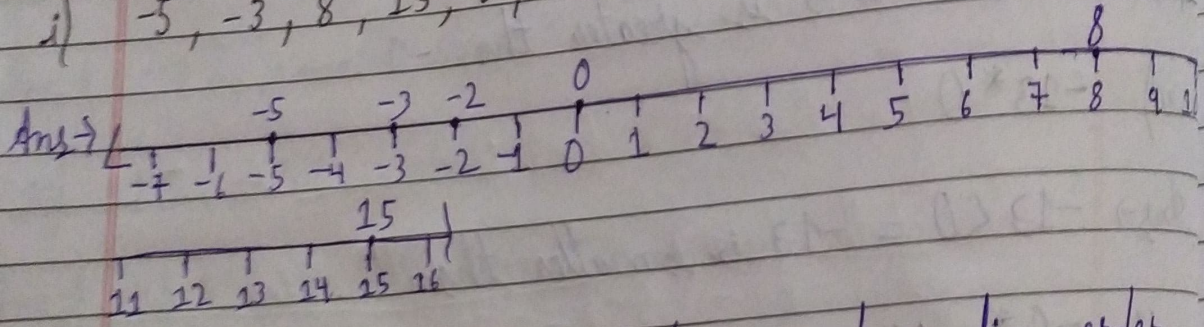 i) -5, -3, 8, 15,
-5 -3 -2 0 8
Ans→ -7 -6 -5 -4 -3 -2 -1 0 1 2 3 4 5 6 7 8 9
15
11 12 13 14 15 16